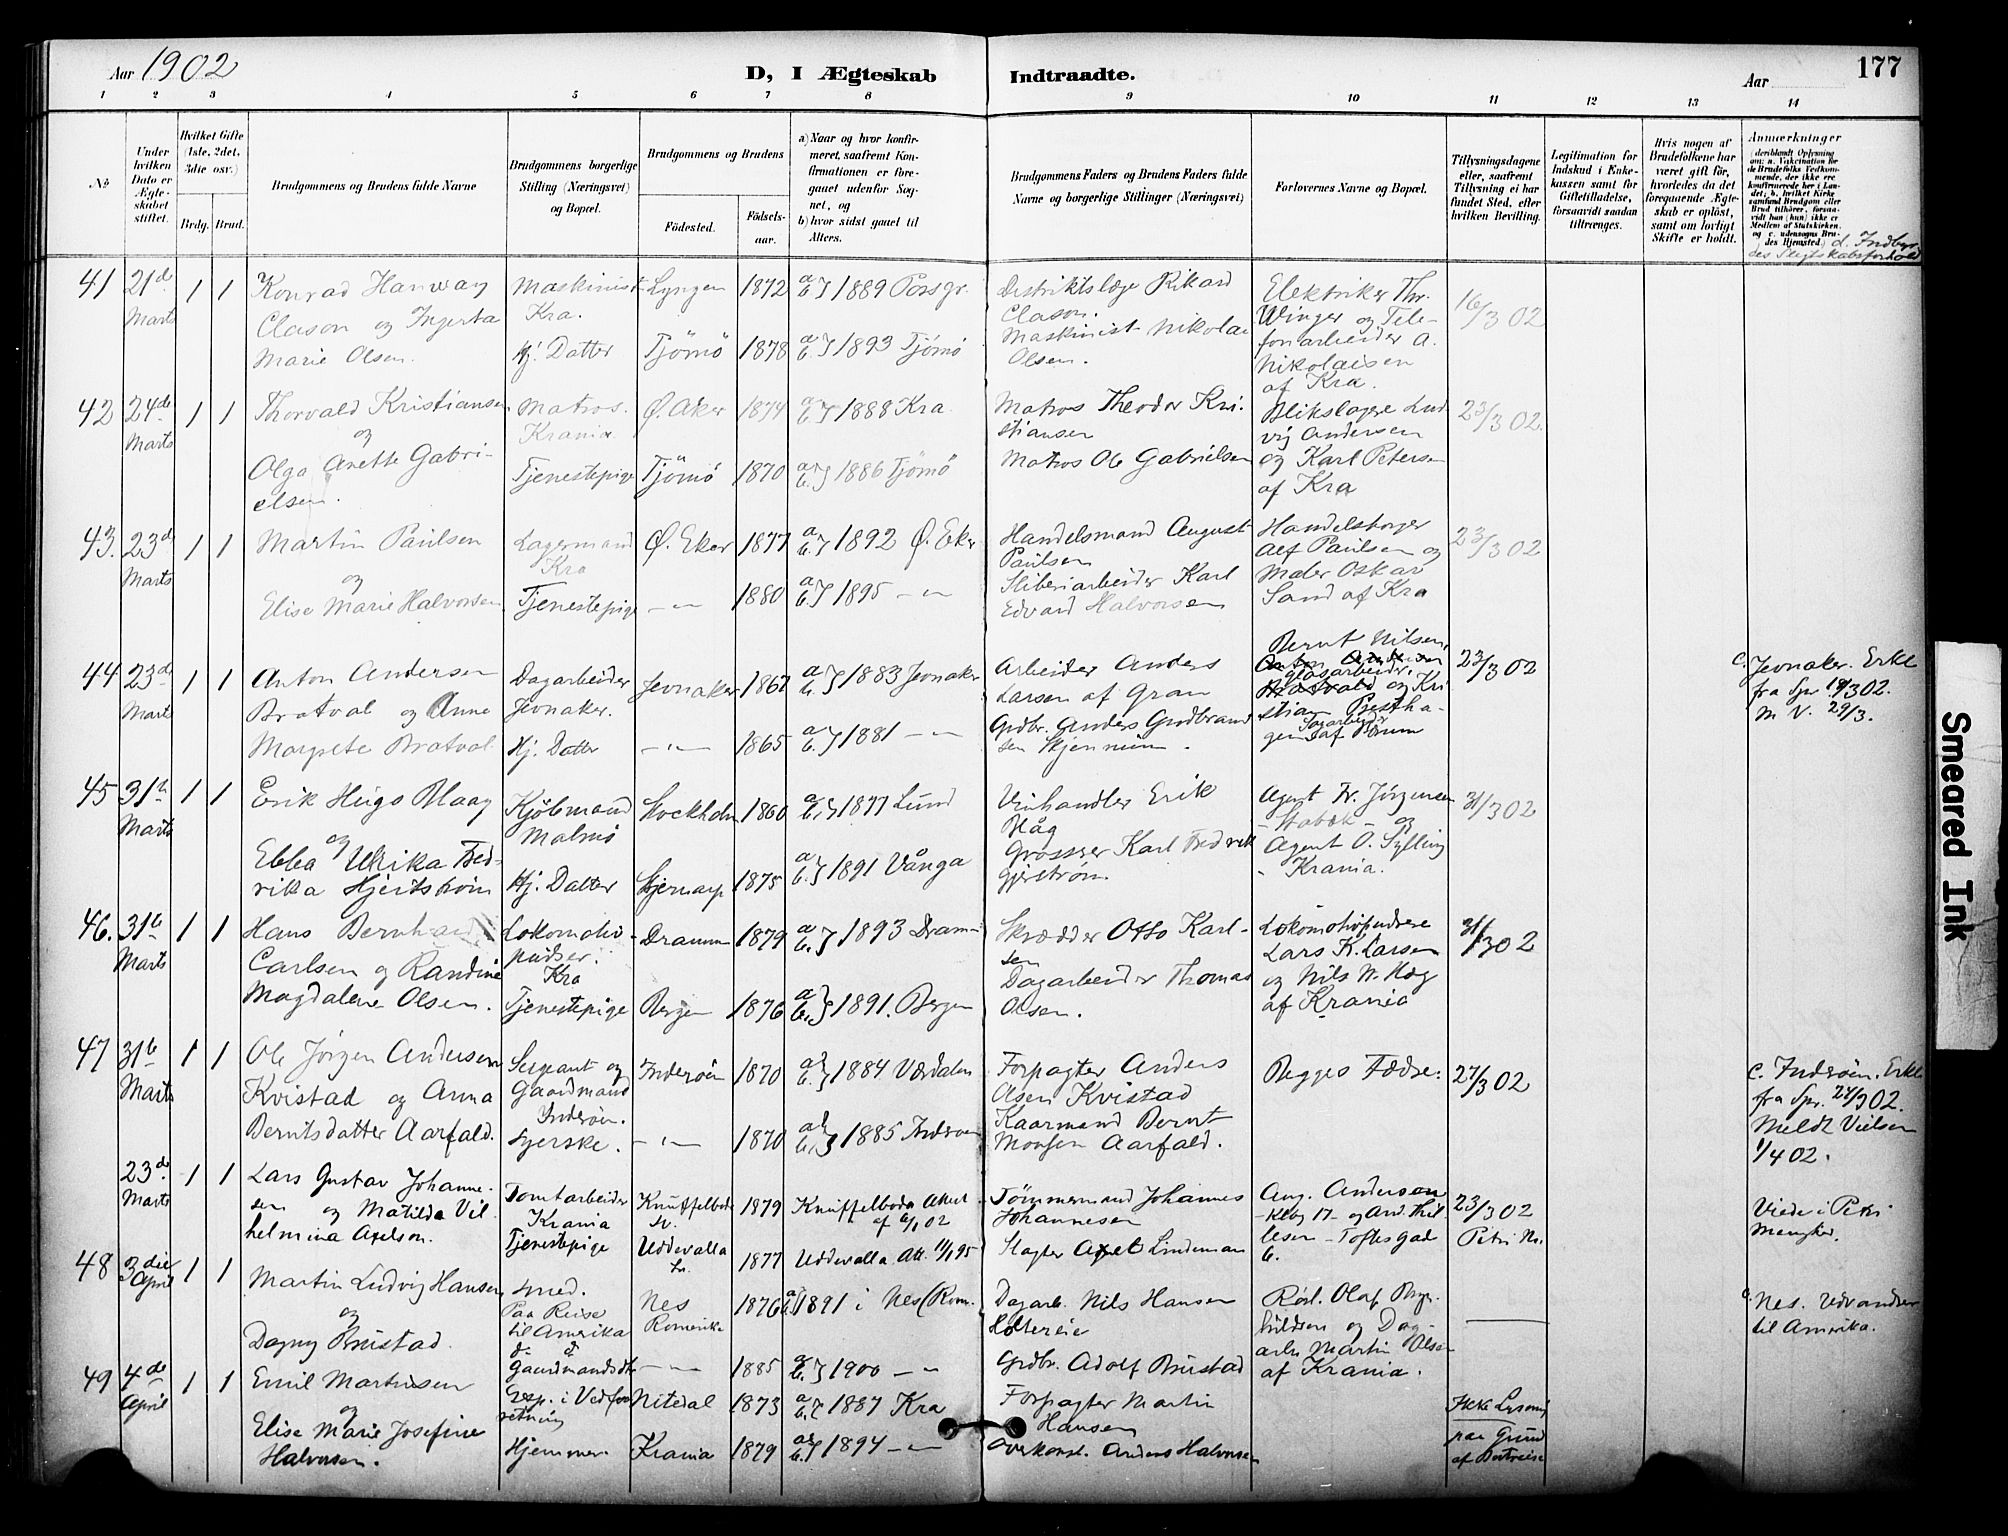 Aar 1902
D, I Ægteskab Indtraadte.
Aar
177
1 2 3 4 5 6 7 8 9 10 11 12 13 14
No
Under hvilken Dato er Ægteskabet stiftet.
Hvilket Gifte (1ste, 2det, 3die osv.)
Brdg. Brud.
Brudgommens og Brudens fulde Navne
Brudgommens borgerlige Stilling (Næringsvei) og Bopæl.
Brudgommens og Brudens
Födested.
Födsels-aar.
a) Naar og hvor konfirmeret, saafremt Konfirmationen er foregaaet udenfor Sognet, og
b) hvor sidst gaaet til Alters.
Brudgommens Faders og Brudens Faders fulde Navne og borgerlige Stillinger (Næringsvei)
Forlovernes Navne og Bopæl.
Tillysningsdagene eller, saafremt Tillysning ei har fundet Sted, efter hvilken Bevilling.
Legitimation for Indskud i Enkekassen samt for Giftetilladelse, forsaavidt saadan tiltrænges.
Hvis nogen af Brudefolkene har været gift för, hvorledes da det foregaaende Ægteskab er oplöst, samt om lovligt Skifte er holdt.
Anmærkninger
41 21de Marts 1 1
Konrad Hanway
Clason og Ingerta
Marie Olsen.
Maskinist
Kra.
Hj. Datter
Lyngen 1872 a b } 1889 Porsgr.
Tjömö 1878 a b } 1893 Tjömö
Distriktslæge Rikard
Clason.
Maskinist Nikolai
Olsen.
Elektriker Thr.
Winger og Tele-
fonarbeider A.
Nikolaisen
af Kra.
16/3 02
42 24de Marts 1 1
Thorvald Kristiansen
og
Olga Anette Gabri-
elsen.
Matros.
Krania.
Tjenestepige
Ø. Aker 1874 a b } 1888 Kra.
Tjömö 1870 a b } 1886 Tjömö
Matros Theodor Kri-
stiansen
Matros Ole Gabrielsen
Blikslager Lud
vig Andersen
og Karl Petersen
af Kra
23/3 02.
43. 23de Marts 1 1
Martin Paulsen
og
Elise Marie Halvorsen
Lagermand
Kra
Tjenestepige
Ø. Eker 1877 a b } 1892 Ø. Eker
— " — 1880 a b } 1895 — " —
Handelsmand August
Paulsen
Sliberiarbeider Karl
Edvard Halvorsen
Handelsborger
Alf Paulsen og
Maler Oskar
Sand af Kra
23/3 02
44 23de Marts 1 1
Anton Andersen
Bratval og Anne
Margrete Bratval
Dagarbeider
Jevnaker.
Hj. Datter
Jevnaker 1867 a b } 1883 Jevnaker
— " — 1865 a b } 1881 — " —
Arbeider Anders
Larsen af Gran
Grdbr. Anders Gudbrand
sen
Bernt Nilsen,
glasarbeider,
og Kri
stian
Dagarbeider
23/3 02
c. Jevnaker. Erkl
fra Spr 19/3 02.
M V. 29/3.
45 31te Marts 1 1
Erik Hugo Blaag
og
Ebba Ulrika Fred-
rikka
Kjöbmand
Malmö
Hj. Datter
Stockholm 1860 a b } 1877 Lund
1875 a b } 1891 Vånga
Vinhandler Erik
Grosserer Karl Fredrik
Agent Fr. Jörgensen
- Stabæk - og
Agent O. Sylling
- Krania.
31/3 02
46. 31te Marts 1 1
Hans Bernhard
Carlsen og Randine
Magdalene Olsen.
Lokomotiv-
pudser.
Kra
Tjenestepige
Dramm 1879 a b } 1893 Dram-
Bergen 1876 a b } 1891. Bergen
Skrædder Otto Karl-
sen
Dagarbeider Thomas
Olsen.
Lokomotivpudsere
Lars K. Larsen
og Nils N. Hæg
af Krania
31/3 02
47 31te Marts 1 1
Ole Jörgen Andersen
Kvistad og Anna
Berntsdatter Aarfald.
Sergeant og
Gaardmand
Inderöen.
Syerske.
Inderöen 1870 a b } 1884 Værdalen
— " — 1870 a b } 1885 Inderöen
Forpagter Anders
Olsen Kvistad
Kaarmand Bernt
Monsen Aarfald.
Begges Fædre:
27/3 02
c. Inderöen. Erkl
fra Spr. 27/3 02.
Meldt Vielsen
1/4 02.
23de Marts 1 1
Lars Gustav Johanne-
sen og Matilda Vil-
helmina Axelson.
Tomtarbeider
Krania
Tjenestepige
Sv. 1879
Uddevalla
Sv. 1877 Uddevalla Att. 11/1 95
Tömmermand Johannes
Johannesen
Slagter Axel Lindeman
Aug. Andersen
6.
23/3 02
Petri M.
Viede i Petri
menigh.
48 3die April 1 1
Martin Ludvig Hansen
og
Dagny Brustad.
Smed.
Paa Reise
til Amerika
Gaardmandsdtr
Nes
Romerike 1876 a b } 1891 i Nes (Rom.
— " — 1885 a b } 1900 — " —
Dagarb. Nils Hansen
Holtereie
Grdbr. Adolf Brustad
Rörl. Olaf Bryn-
hildsen og Dag-
arb. Martin Olsen
af Krania.
c. Nes. Udvandrer
til Amerika.
49 4de April 1 1
Emil Martinsen
og
Elise Marie Josefine
Halvorsen.
Exp. i Vedfor
retning
Hjemmev.
Nitedal 1873 a b } 1887 Kra
Krania 1879 a b } 1894 — " —
Forpagter Martin
Hansen
Overkonst. Anders Halvorsen
Ikke Lysning
paa Grund
af Bortreise
Smeared Ink